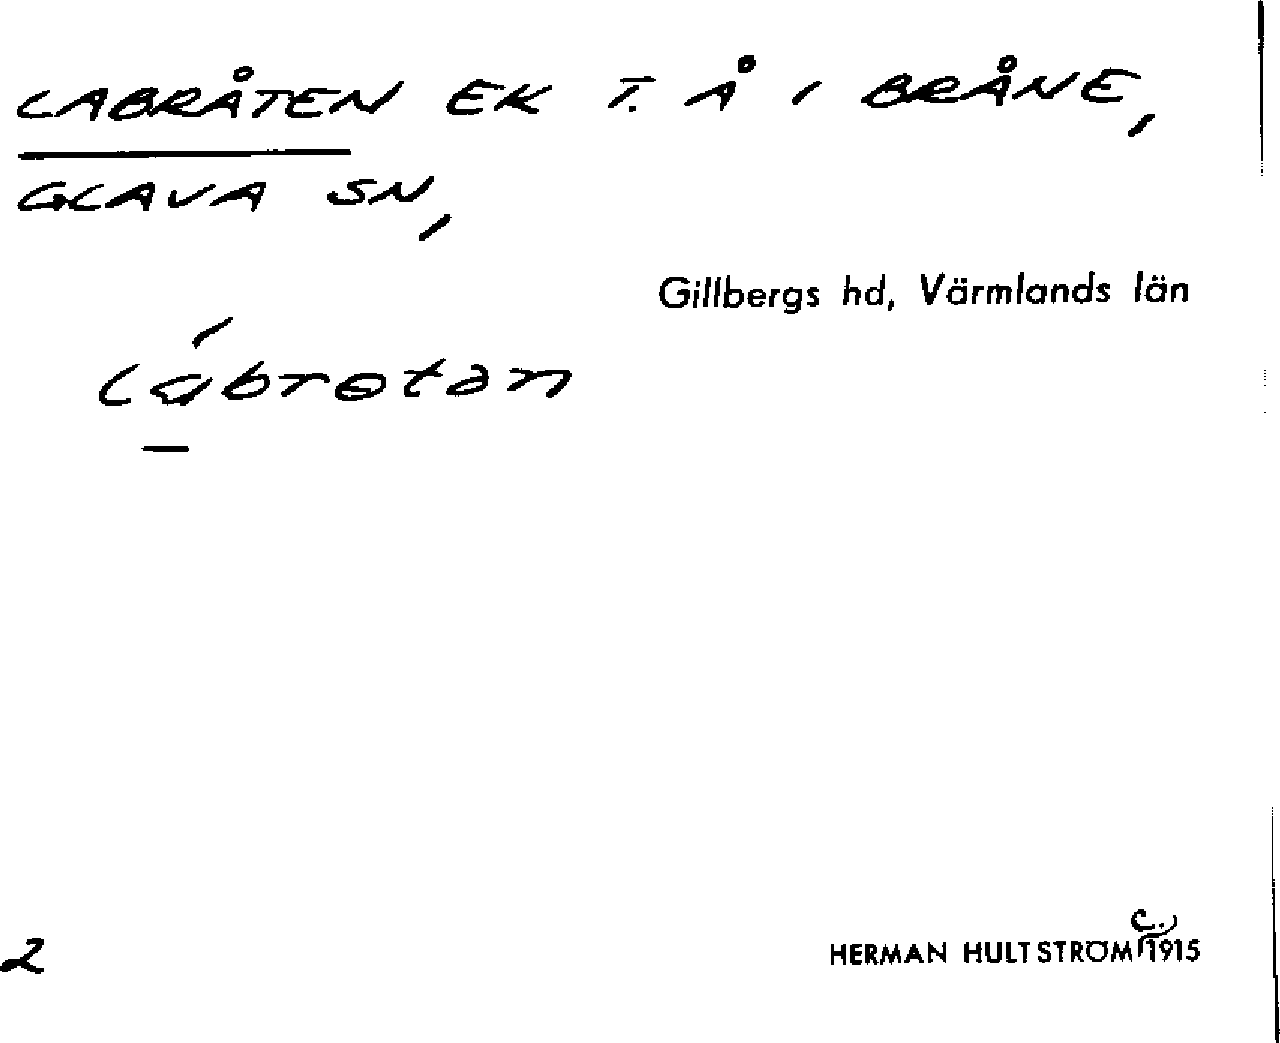 LABRÅTEN EK T. Å I BRÅNE,
GLAVA SN,
Gillbergs hd, Värmlands län
lábrɵtan
2
HERMAN HULTSTRÖM C. 1915